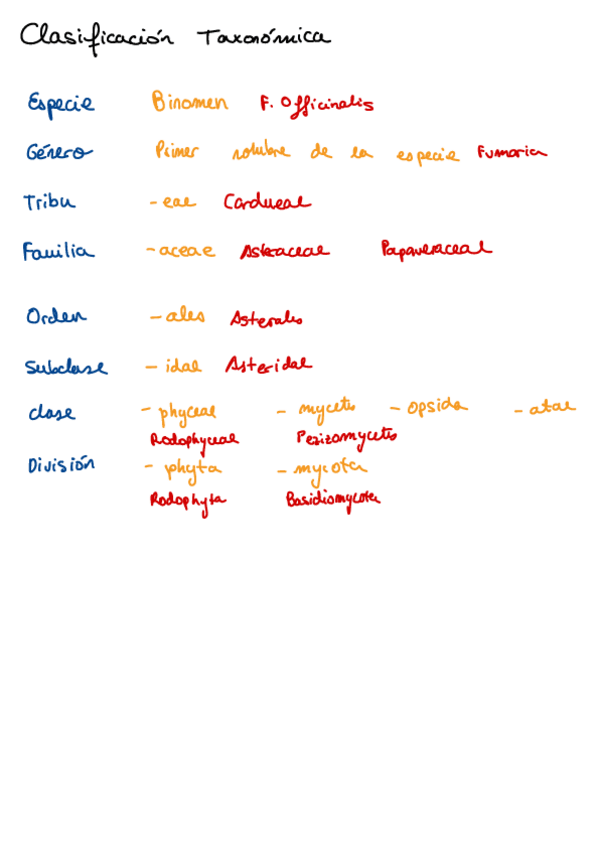 Clasificación Taxonómica
Especie Binomen F. Officinalis
Género Primer nombre de la especie Fumaria
Tribu -eae Cardueae
Familia -aceae Asteraceae Papaveraceae
Orden -ales Asterales
Subclase -idae Asteridae
clase -phyceae -mycetes -opsida -atae
Rodophyceae Pezizomycetes
División -phyta -mycota
Rodophyta Basidiomycota